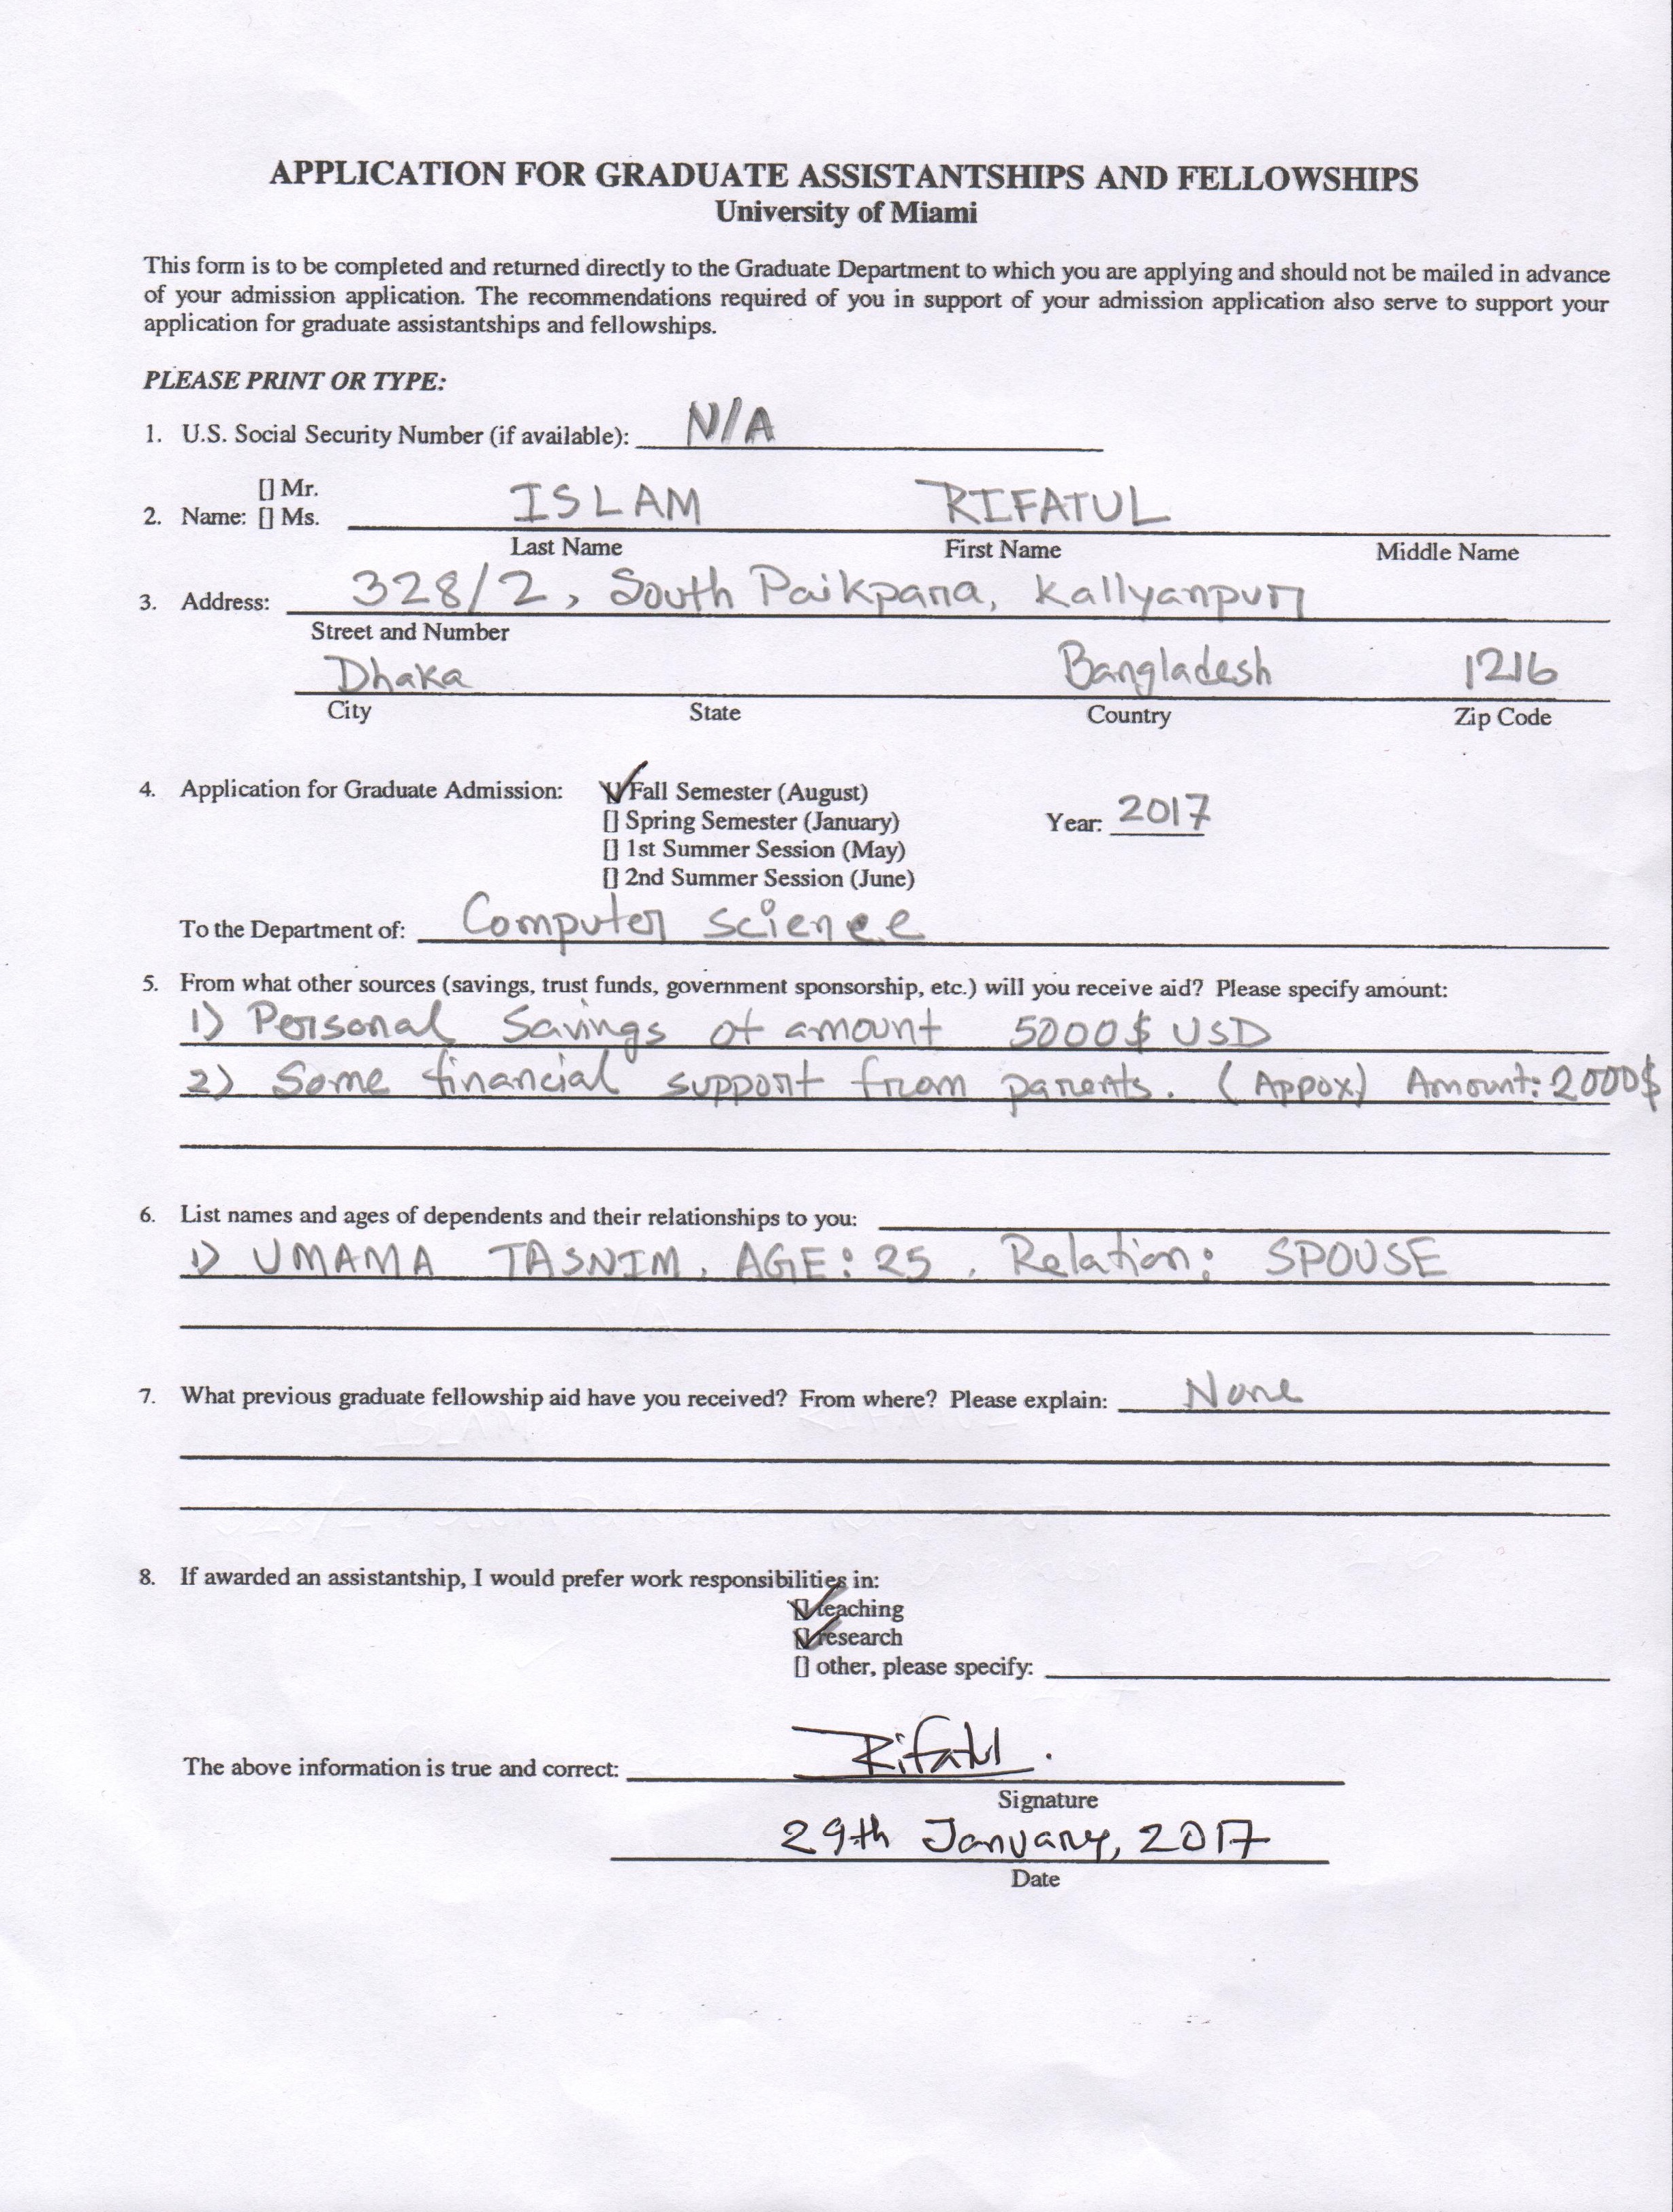 APPLICATION FOR GRADUATE ASSISTANTSHIPS AND FELLOWSHIPS
University of Miami
This form is to be completed and returned directly to the Graduate Department to which you are applying and should not be mailed in advance
of your admission application. The recommendations required of you in support of your admission application also serve to support your
application for graduate assistantships and fellowships.
PLEASE PRINT OR TYPE:
1. U.S. Social Security Number (if available): N/A
[] Mr.
2. Name: [] Ms. ISLAM RIFATUL
Last Name First Name Middle Name
3. Address: 328/2, South Paikpara, Kallyanpur
Street and Number
Dhaka Bangladesh 1216
City State Country Zip Code
4. Application for Graduate Admission: [✓] Fall Semester (August)
[] Spring Semester (January) Year: 2017
[] 1st Summer Session (May)
[] 2nd Summer Session (June)
To the Department of: Computer Science
5. From what other sources (savings, trust funds, government sponsorship, etc.) will you receive aid? Please specify amount:
1) Personal Savings of amount 5000$ USD
2) Some financial support from parents. (Appox) Amount: 2000$
6. List names and ages of dependents and their relationships to you:
1) UMAMA TASNIM. AGE: 25. Relation: SPOUSE
7. What previous graduate fellowship aid have you received? From where? Please explain: None
8. If awarded an assistantship, I would prefer work responsibilities in:
[✓] teaching
[✓] research
[] other, please specify:
The above information is true and correct: Rifatul.
Signature
29th January, 2017
Date